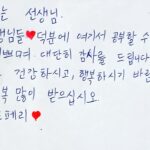 는 선생님.
생님들 ♥ 덕분에 여기서 공부할 수
쁘며. 대단히 감사를 드립니다
건강하시고, 행복하시기 바란
복 많이 받으십시오.
페리 ♥